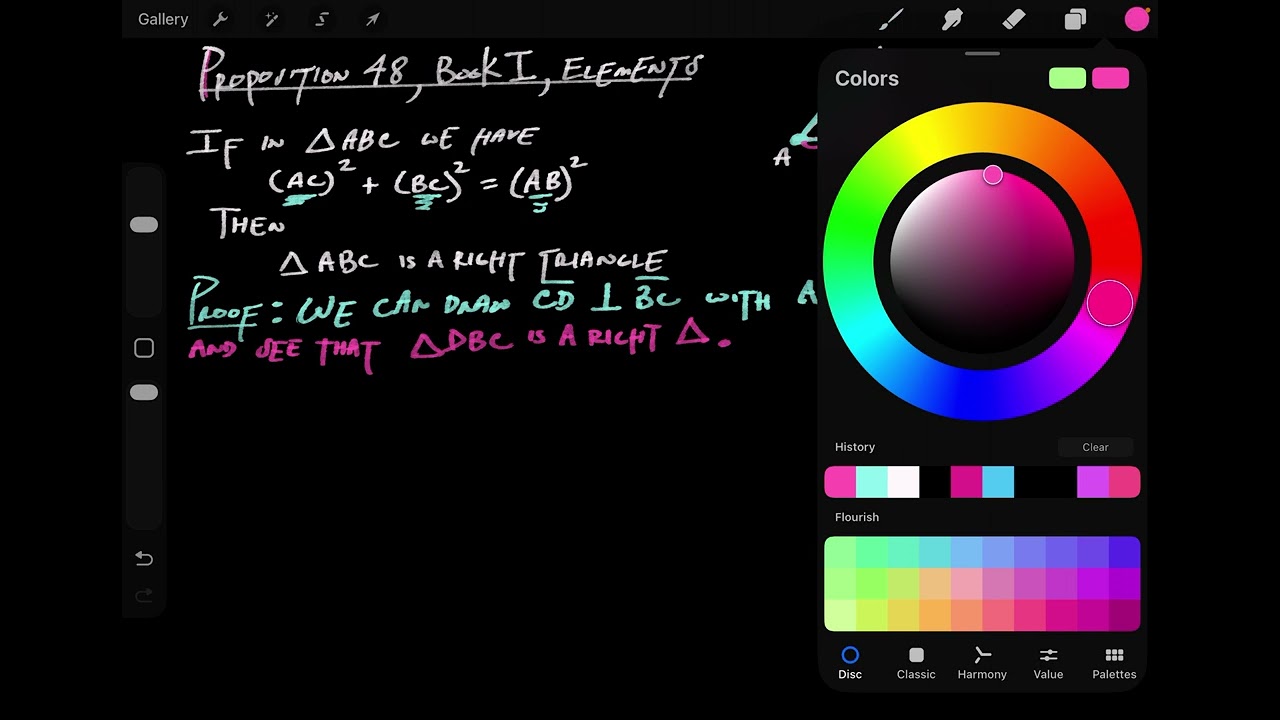 Gallery
PROPOSITION 48, BOOK I, ELEMENTS
IF IN △ABC WE HAVE
(AC)² + (BC)² = (AB)²
THEN
△ ABC IS A RIGHT TRIANGLE
PROOF: WE CAN DRAW CD ⊥ BC WITH A
AND SEE THAT △DBC IS A RIGHT △.
A
Colors
History
Clear
Flourish
Disc
Classic
Harmony
Value
Palettes